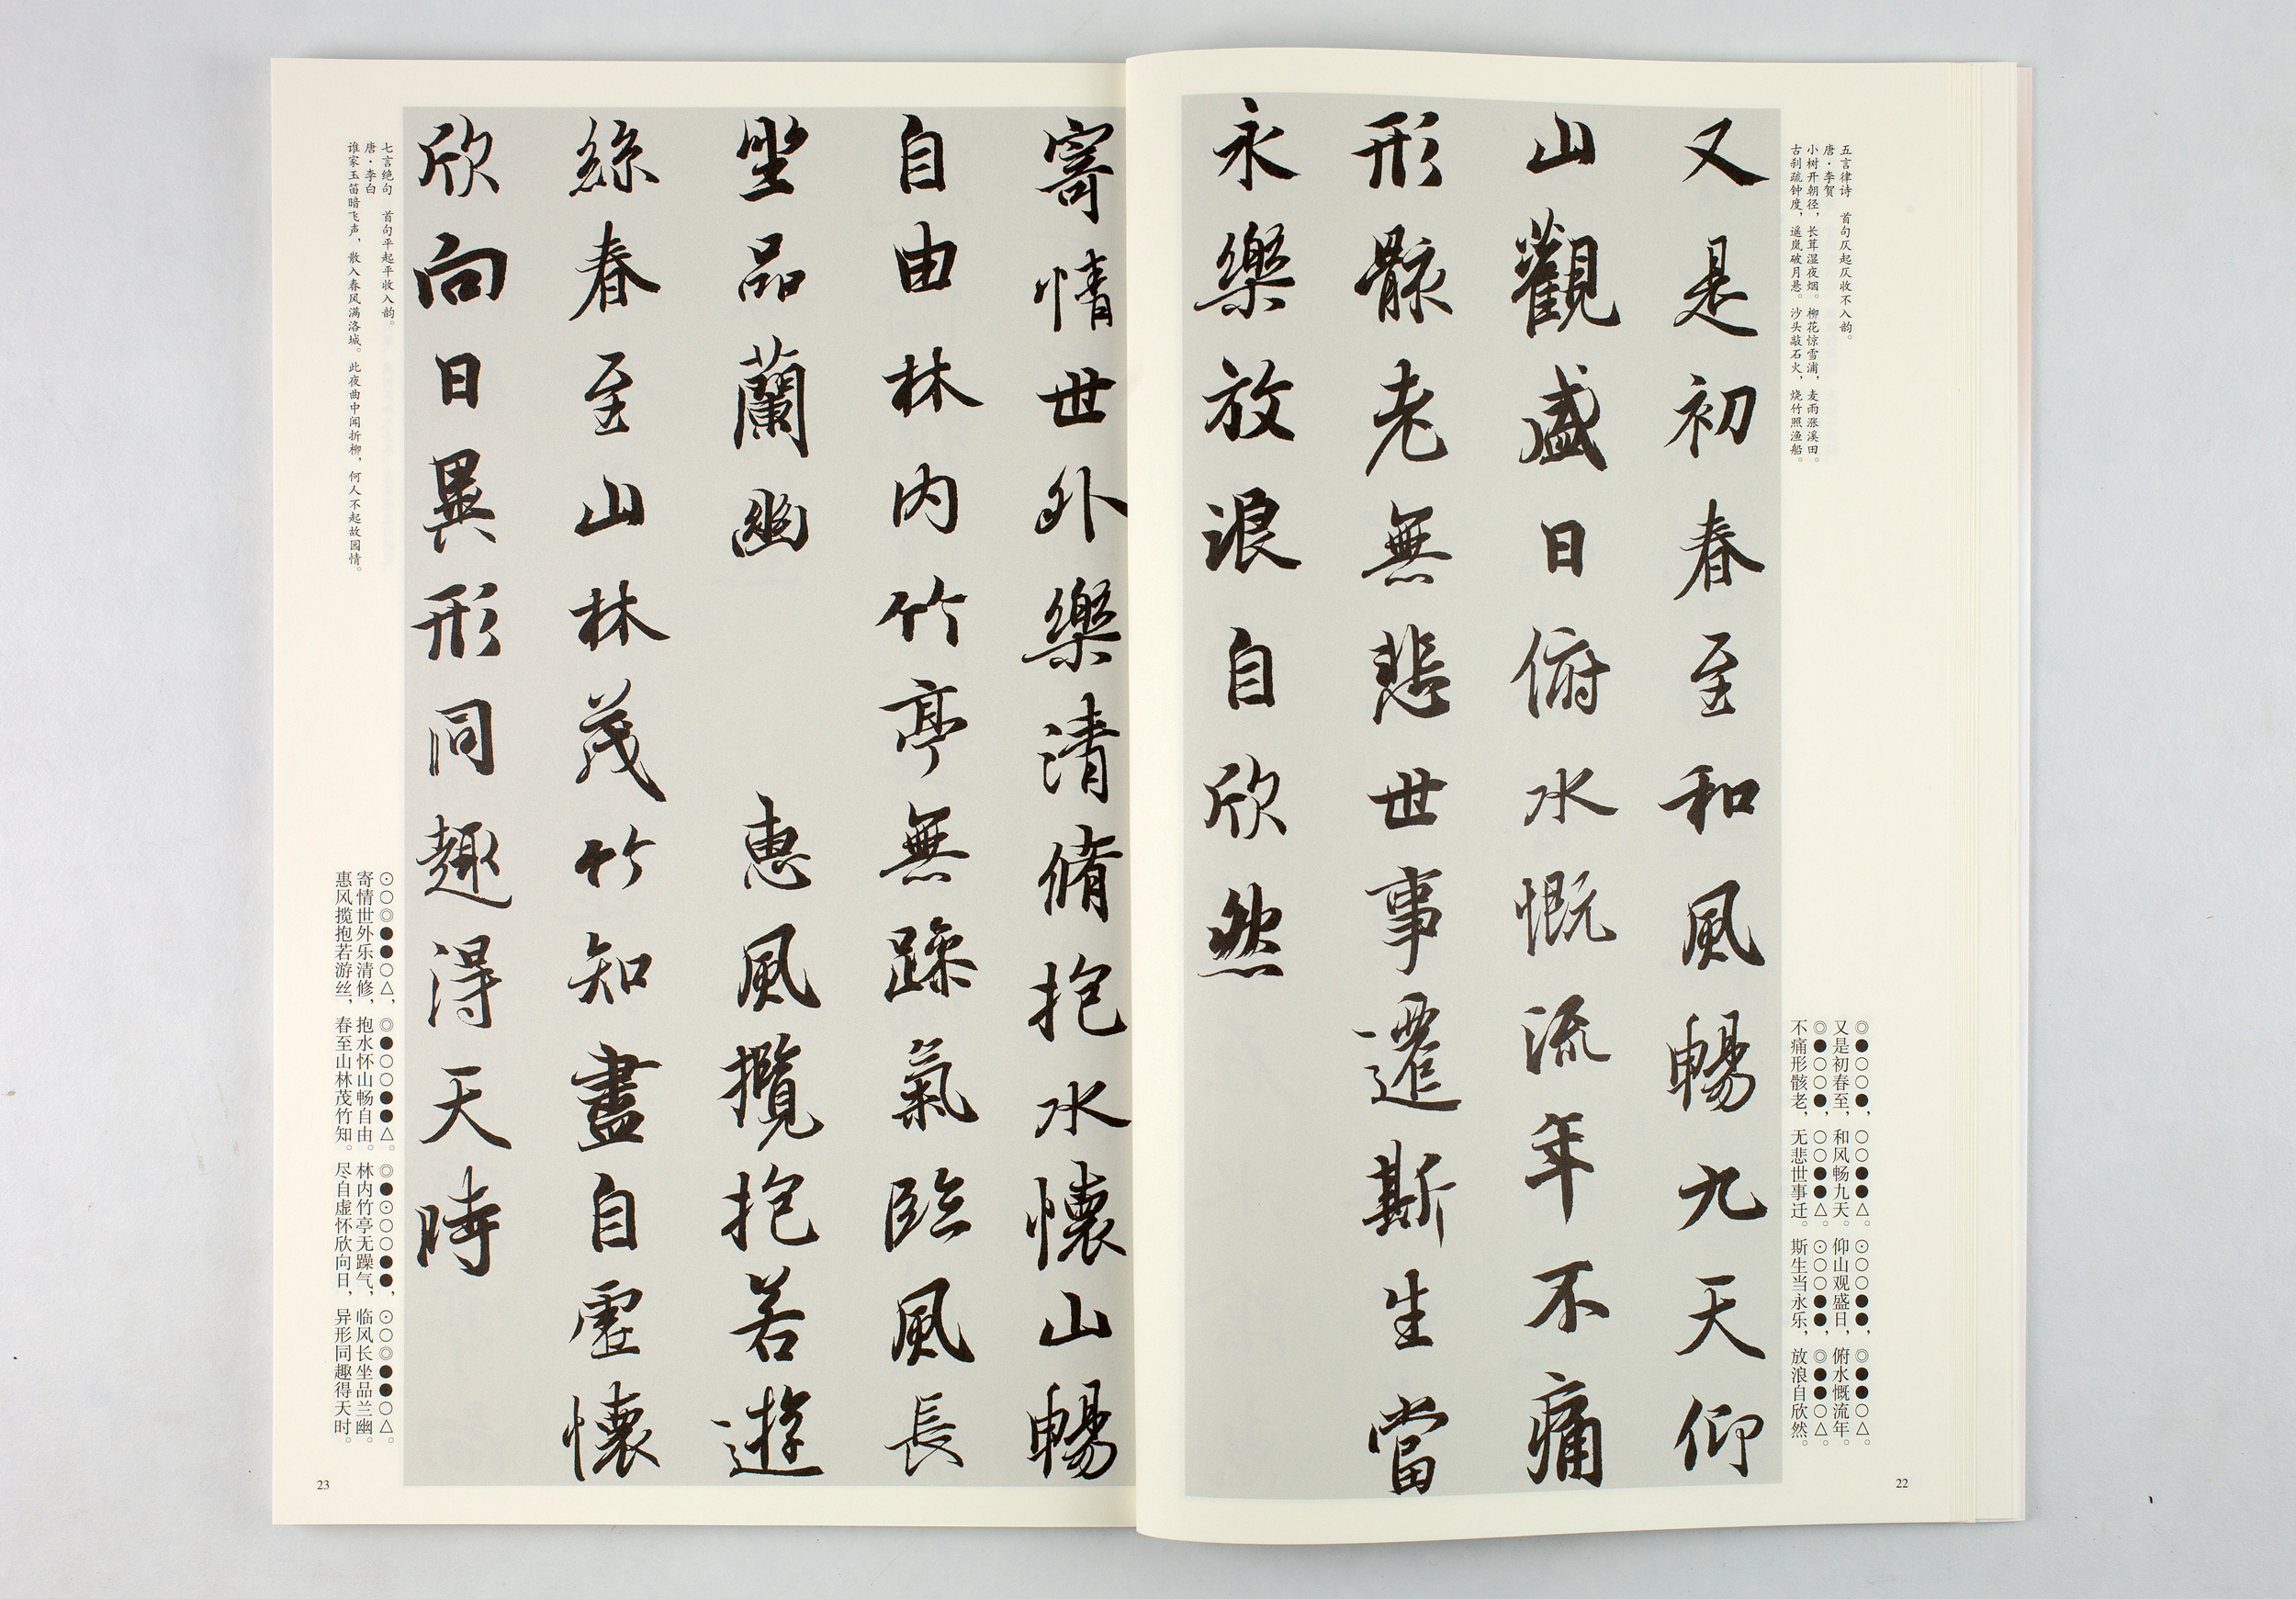 五言律诗　首句仄起仄收不入韵。
唐·李贺
小树开朝径，长茸湿夜烟。柳花惊雪浦，麦雨涨溪田。
古刹疏钟度，遥岚破月悬。沙头敲石火，烧竹照渔船。
◎●○○●，○○●●△。⊙○○●●，◎●●○△。
又是初春至，和风畅九天。仰山观盛日，俯水慨流年。
◎●○○●，○○●●△。⊙○○●●，◎●●○△。
不痛形骸老，无悲世事迁。斯生当永乐，放浪自欣然。
又是初春至和風暢九天仰
山觀盛日俯水慨流年不痛
形骸老無悲世事遷斯生當
永樂放浪自欣然
22
寄情世外樂清脩抱水懷山暢
自由林内竹亭無躁氣臨風長
坐品蘭幽　惠風攬抱若遊
絲春至山林茂竹知盡自虛懷
欣向日異形同趣得天時
七言绝句　首句平起平收入韵。
唐·李白
谁家玉笛暗飞声，散入春风满洛城。此夜曲中闻折柳，何人不起故园情。
⊙○◎●●○△，◎●○○●●△。◎●⊙○○●●，⊙○◎●●○△。
寄情世外乐清修，抱水怀山畅自由。林内竹亭无躁气，临风长坐品兰幽。
惠风揽抱若游丝，春至山林茂竹知。尽自虚怀欣向日，异形同趣得天时。
23